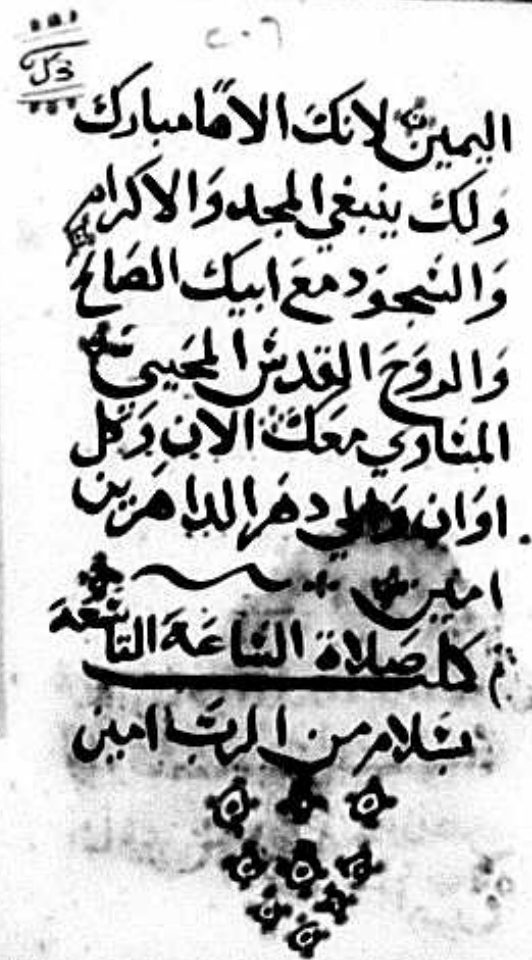 اليمين لانك الاها مبارك
ولك ينبغي المجد والاكرام
والسجود مع ابيك الصالح
والروح القدس المحيي
المساوي معك الان وكل
اوان والي دهر الداهرين
امين
كملت صلاة الساعة التاسعة
بسلام من الرب امين